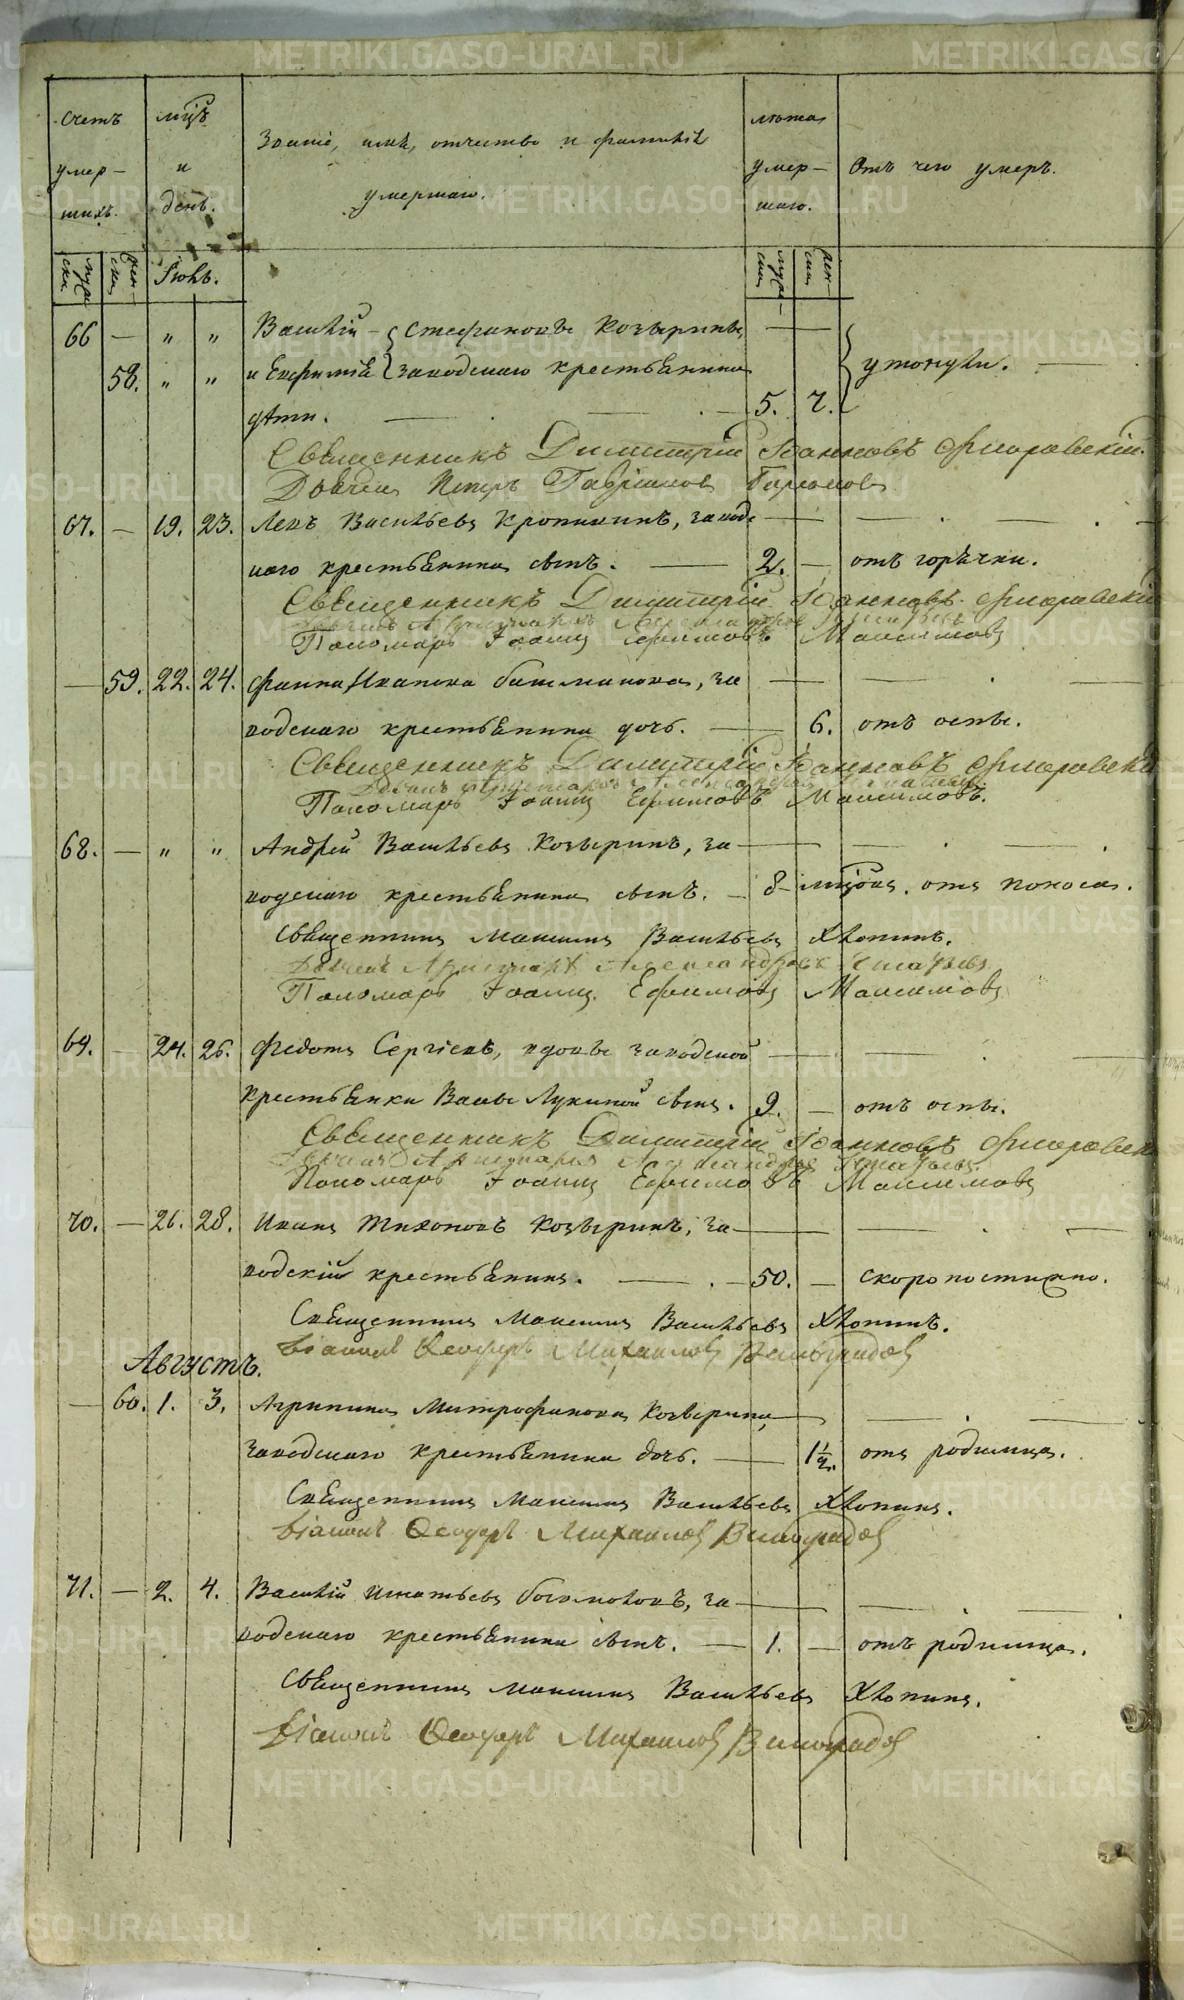 METRIKI.GASO-URAL.RU
Счетъ умер-шихъ.
мцъ и день.
Званіе, имя, отчество и фамилія умершаго.
лѣта умер-шаго.
Отъ чего умеръ.
муж-ски жен-ски Іюль. муж-ски жен-ски
66 — " " Василій — Стефановы Козырины
58. " " и Евфимія заводскаго крестьянина утонули.
дѣти. 5. 7.
Священникъ Димитрій Іоанновъ Флоровскій.
Дьячекъ Петръ Гавріиловъ
67. — 19. 23. Левъ Васильевъ Кропинінъ, завод-
скаго крестьянина сынъ. 2. — отъ горячки.
Священникъ Димитрій Іоанновъ Флоровскій
Дьячекъ Аристархъ Александровъ Игнатьевъ
Пономарь Іоаннъ Ефимовъ Максимовъ
— 59. 22. 24. Фаина Иванова Башманова, за-
водскаго крестьянина дочь. 6. отъ оспы.
Священникъ Димитрій Іоанновъ Флоровскій
Дьячекъ Аристархъ Александровъ Игнатьевъ
Пономарь Іоаннъ Ефимовъ Максимовъ.
68. — " " Андрей Васильевъ Козыринъ, за-
водскаго крестьянина сынъ. — 8 мцовъ. отъ поноса.
Священникъ Максимъ Васильевъ Хлопинъ.
Дьячекъ Аристархъ Александровъ Игнатьевъ
Пономарь Іоаннъ Ефимовъ Максимовъ
69. — 24. 26. Федотъ Сергіевъ, вдовы заводской
крестьянки Вассы Лукиной сынъ. 9. — отъ оспы.
Священникъ Димитрій Іоанновъ Флоровскій
Дьячекъ Аристархъ Александровъ Игнатьевъ
Пономарь Іоаннъ Ефимовъ Максимовъ
70. — 26. 28. Иванъ Тихоновъ Козыринъ, за-
водскій крестьянинъ. — 50. — скоропостижно.
Священникъ Максимъ Васильевъ Хлопинъ.
Діаконъ Ѳеодоръ Михаиловъ Виноградовъ
Августъ.
— 60. 1. 3. Агрипина Митрофанова Козырина,
заводскаго крестьянина дочь. — 1½. отъ родимца.
Священникъ Максимъ Васильевъ Хлопинъ.
Діаконъ Ѳеодоръ Михаиловъ Виноградовъ
71. — 2. 4. Василій Игнатьевъ Богомоловъ, за-
водскаго крестьянина сынъ. — 1. — отъ родимца.
Священникъ Максимъ Васильевъ Хлопинъ.
Діаконъ Ѳеодоръ Михаиловъ Виноградовъ